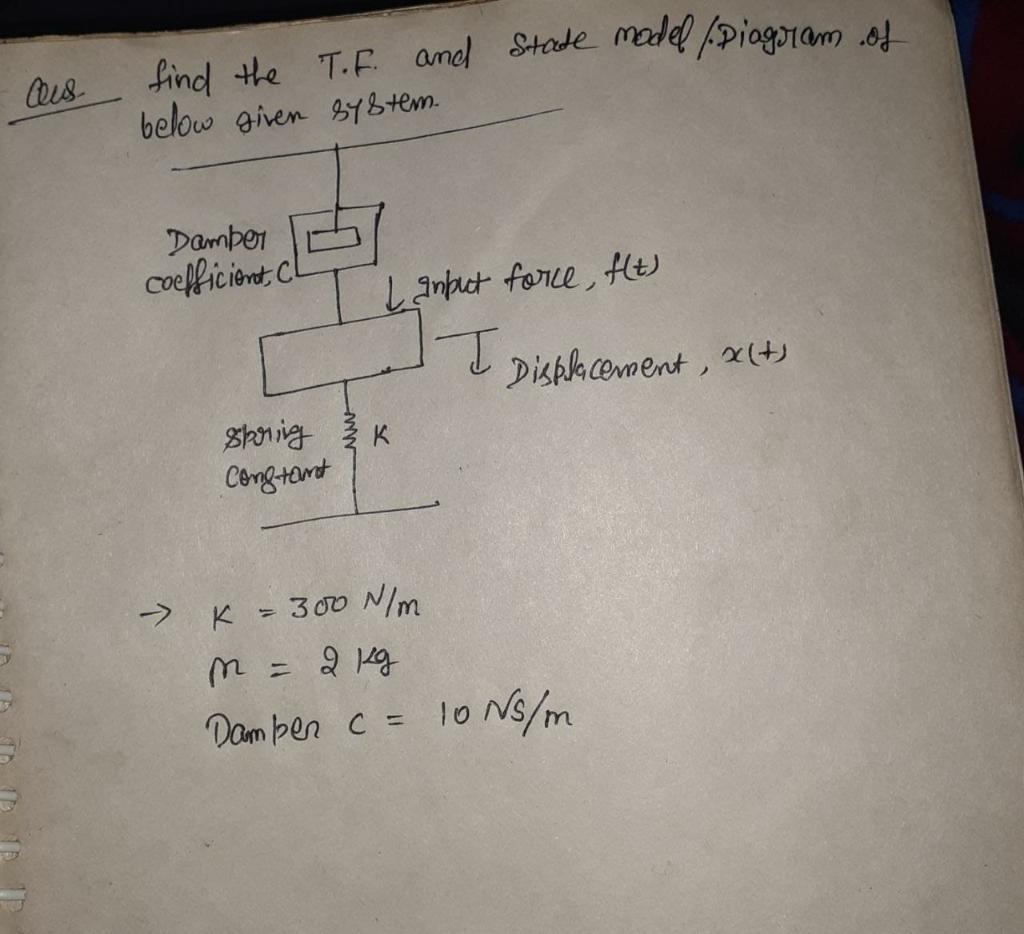 Ques. find the T.F. and State model/Diagram of
below given system.
Damper
coefficient, C
Input force, f(t)
Displacement, x(t)
Spring K
Constant
→ K = 300 N/m
m = 2 kg
Damper C = 10 NS/m